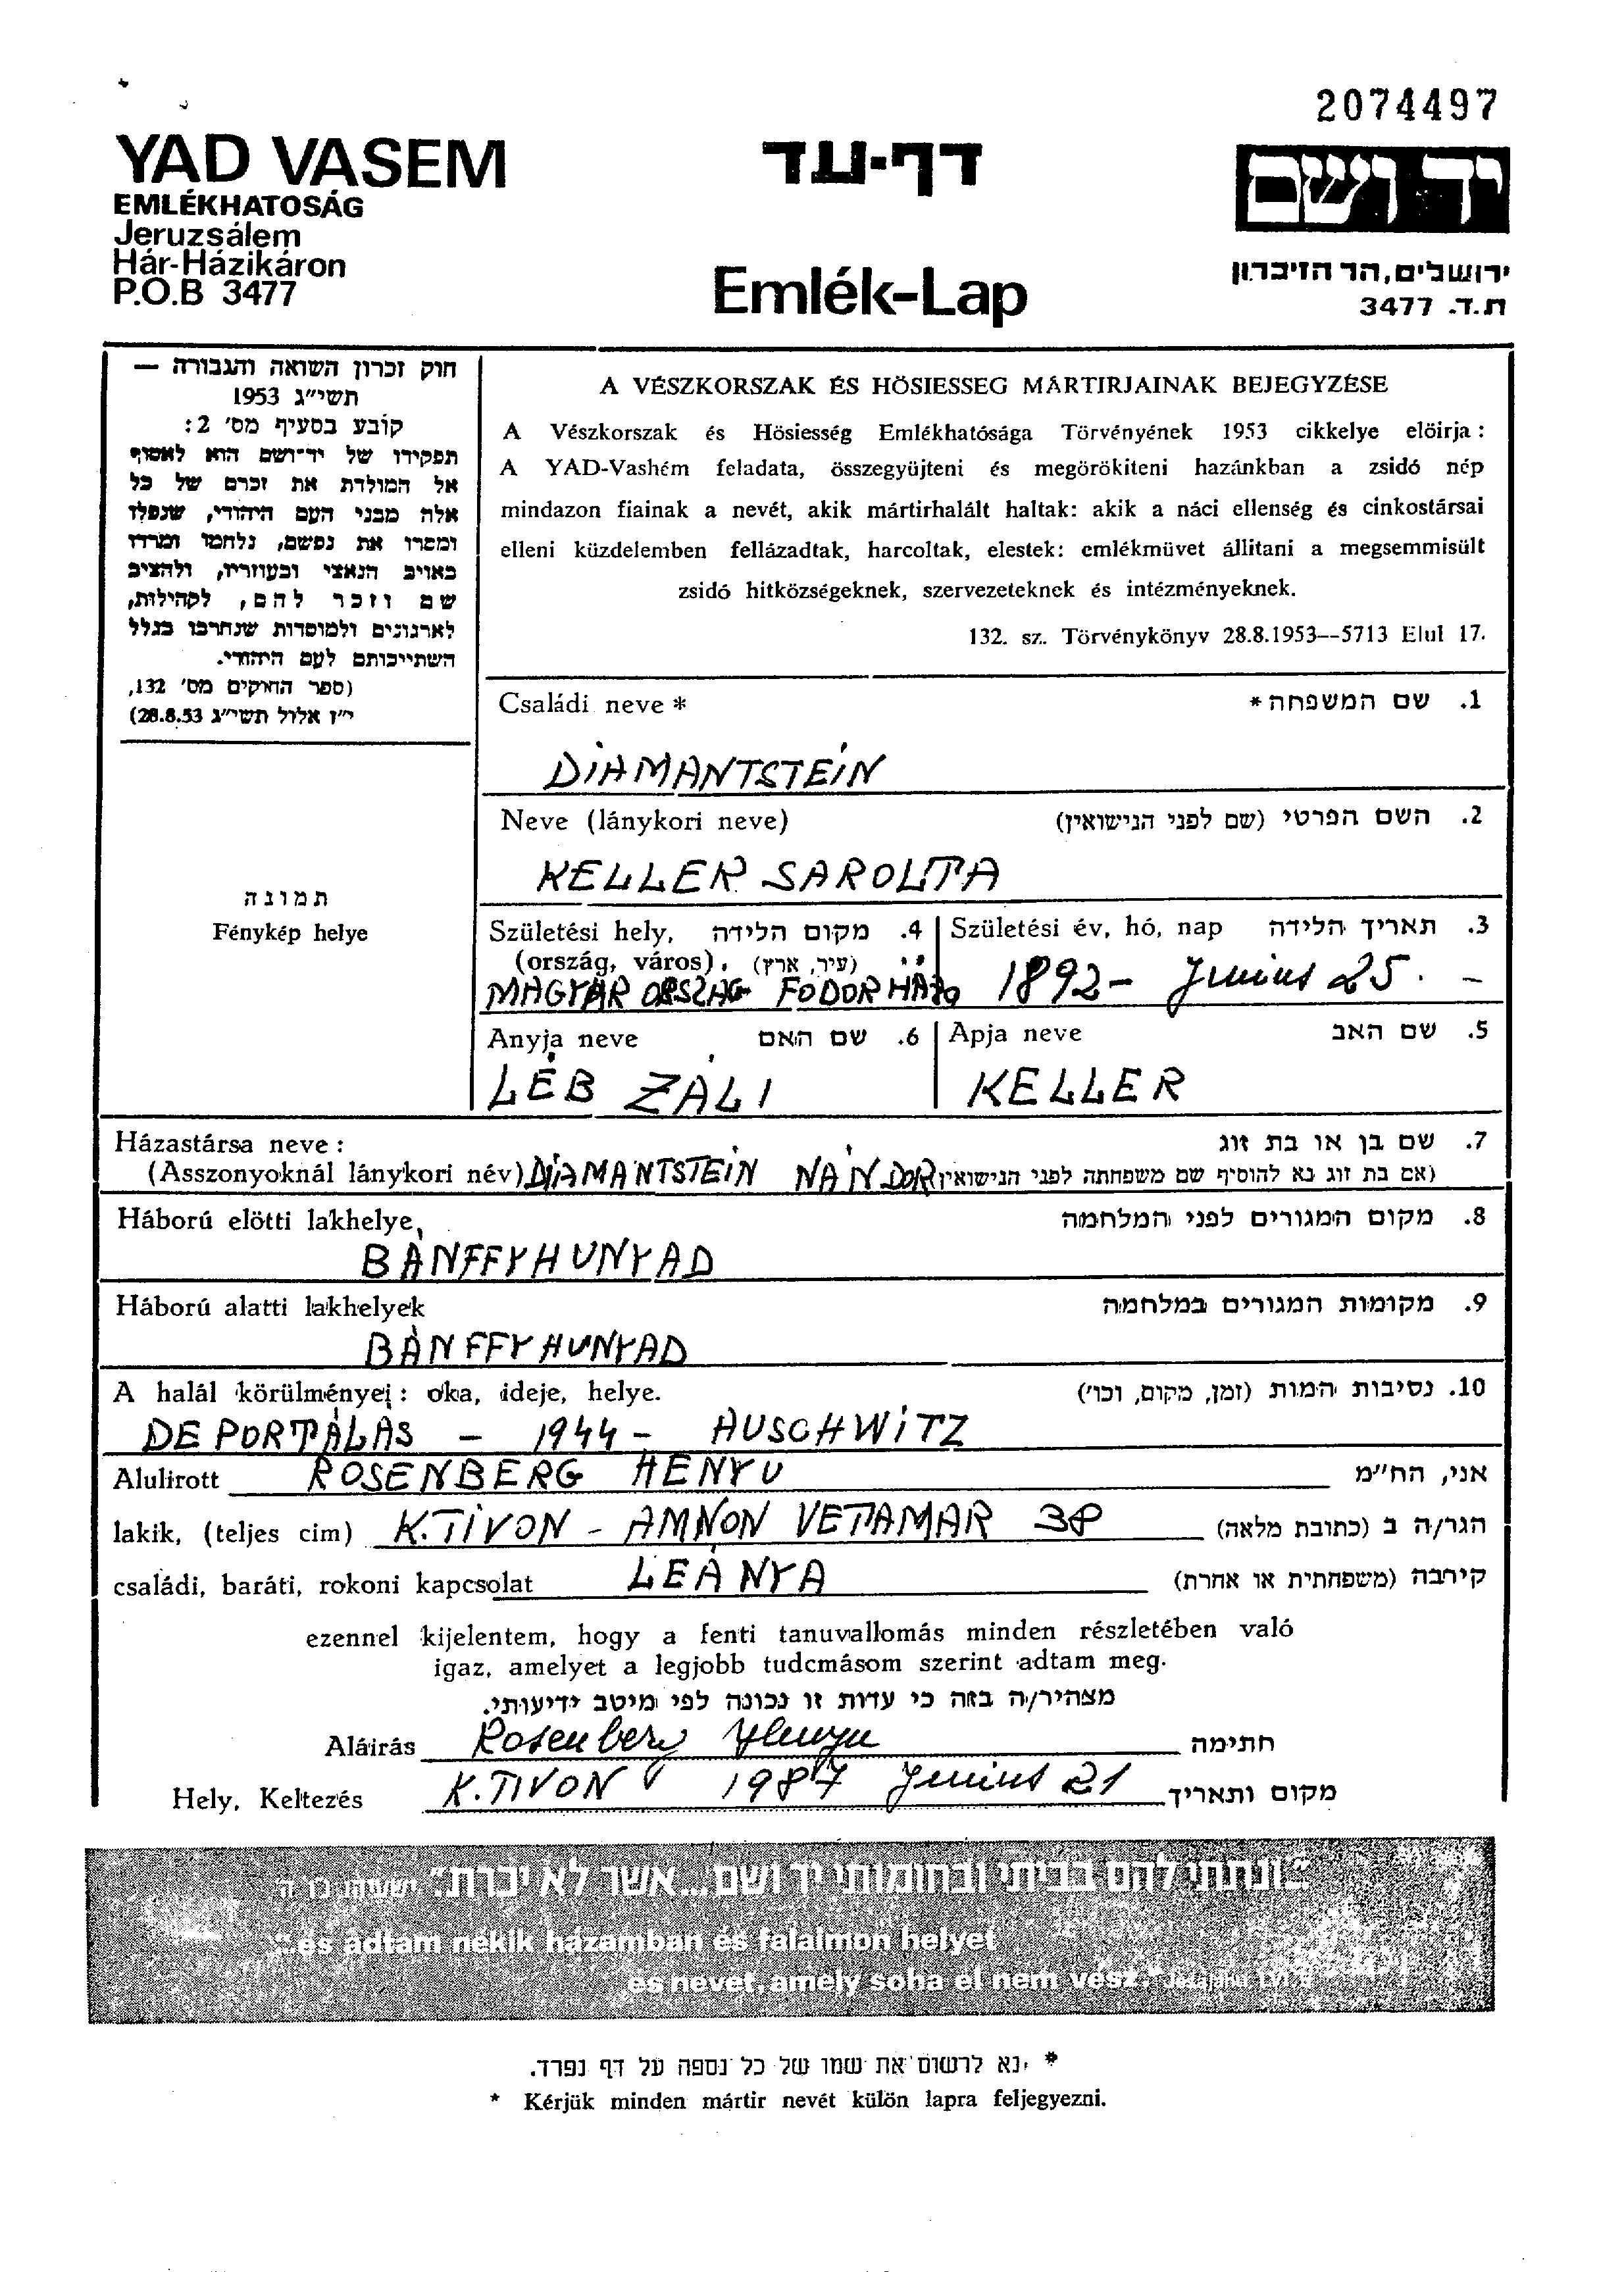 2074497
YAD VASEM
EMLÉKHATOSÁG
Jeruzsálem
Hár-Házikáron
P.O.B 3477
דף-עד
Emlék-Lap
יד ושם
ירושלים, הר הזיכרון
ת.ד. 3477
חוק זכרון השואה והגבורה —
תשי"ג 1953
קובע בסעיף מס' 2:
תפקידו של יד-ושם הוא לאסוף
אל המולדת את זכרם של כל
אלה מבני העם היהודי, שנפלו
ומסרו את נפשם, נלחמו ומרדו
באויב הנאצי ובעוזריו, ולהציב
שם וזכר להם, לקהילות,
לארגונים ולמוסדות שנחרבו בגלל
השתייכותם לעם היהודי.
(ספר החוקים מס' 132,
י"ז אלול תשי"ג 28.8.53)
תמונה
Fénykép helye
A VÉSZKORSZAK ÉS HÖSIESSEG MÁRTIRJAINAK BEJEGYZÉSE
A Vészkorszak és Hösiesség Emlékhatósága Törvényének 1953 cikkelye elöirja:
A YAD-Vashém feladata, összegyüjteni és megörökiteni hazánkban a zsidó nép
mindazon fiainak a nevét, akik mártirhalált haltak: akik a náci ellenség és cinkostársai
elleni küzdelemben fellázadtak, harcoltak, elestek: emlékmüvet állitani a megsemmisült
zsidó hitközségeknek, szervezeteknek és intézményeknek.
132. sz. Törvénykönyv 28.8.1953--5713 Elul 17.
Családi neve * שם המשפחה * .1
DIAMANTSTEIN
Neve (lánykori neve) השם הפרטי (שם לפני הנישואין) .2
KELLER SAROLTA
Születési hely, מקום הלידה .4 Születési év, hó, nap תאריך הלידה .3
(ország, város), (עיר, ארץ)
MAGYAR ORSZAG FODORHÁZA 1892 - Junius 25. -
Anyja neve שם האם .6 Apja neve שם האב .5
LÉB ZÁLI KELLER
Házastársa neve: שם בן או בת זוג .7
(Asszonyoknál lánykori név) DIAMANTSTEIN NÁNDOR (אם בת זוג נא להוסיף שם משפחתה לפני הנישואין)
Háború elötti lakhelye, מקום המגורים לפני המלחמה .8
BÁNFFYHUNYAD
Háború alatti lakhelyek מקומות המגורים במלחמה .9
BÁNFFYHUNYAD
A halál körülményei: oka, ideje, helye. נסיבות המות (זמן, מקום, וכו') .10
DEPORTÁLAS - 1944 - AUSCHWITZ
Alulirott ROSENBERG HENYU אני, הח"מ
lakik, (teljes cim) K.TIVON - AMNON VETAMAR 38 הגר/ה ב (כתובת מלאה)
családi, baráti, rokoni kapcsolat LEÁNYA קירבה (משפחתית או אחרת)
ezennel kijelentem, hogy a fenti tanuvallomás minden részletében való
igaz, amelyet a legjobb tudcmásom szerint adtam meg.
מצהיר/ה בזה כי עדות זו נכונה לפי מיטב ידיעותי.
Aláirás Rosenberg Henyu חתימה
Hely, Keltezés K.TIVON 1987 Junius 21 מקום ותאריך
"ונתתי להם בביתי ובחומותי יד ושם...אשר לא יכרת". ישעיהו נו ה
"..és adtam nékik házamban és falaimon helyet
és nevet, amely soha el nem vész."
* נא לרשום את שמו של כל נספה על דף נפרד.
* Kérjük minden mártir nevét külön lapra feljegyezni.